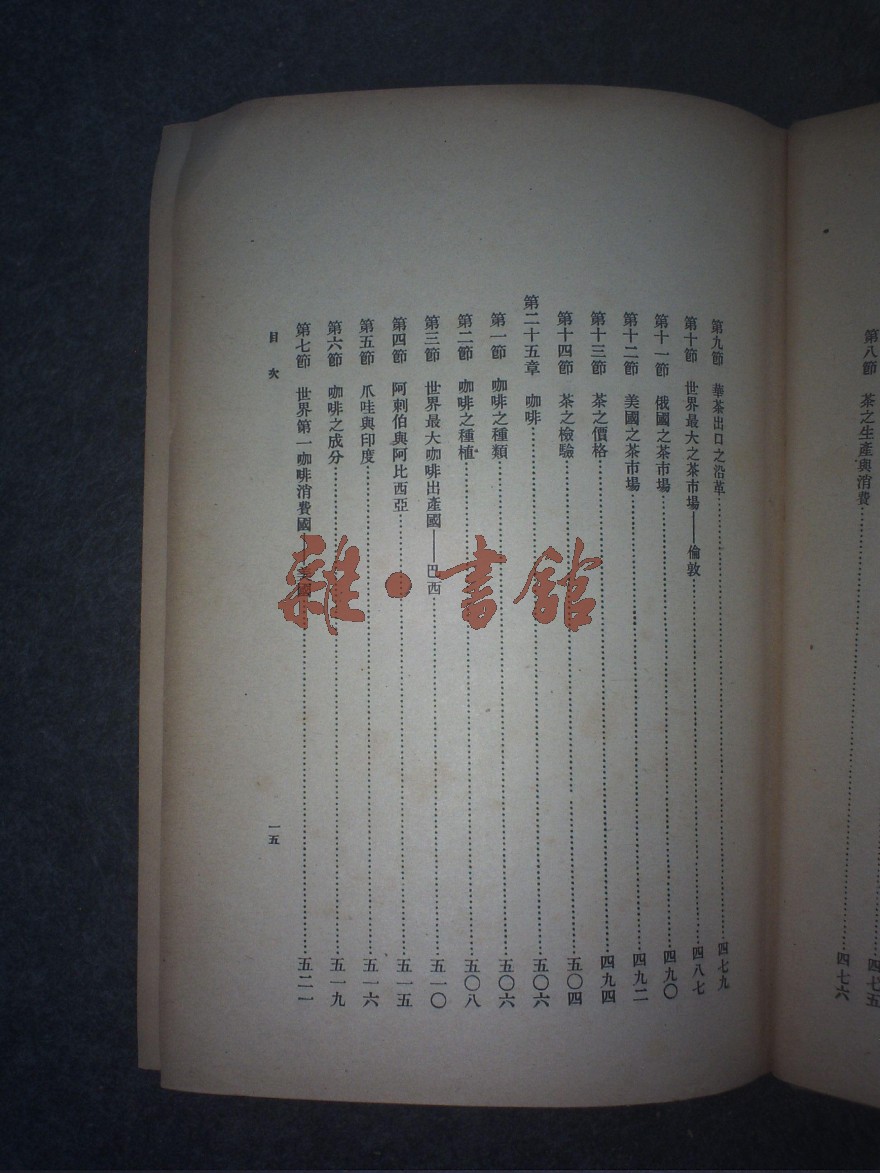 第八節　茶之生產與消費……四七五
……四七六
第九節　華茶出口之沿革……四七九
第十節　世界最大之茶市場——倫敦……四八七
第十一節　俄國之茶市場……四九〇
第十二節　美國之茶市場……四九二
第十三節　茶之價格……四九四
第十四節　茶之檢驗……五〇四
第二十五章　咖啡……五〇六
第一節　咖啡之種類……五〇六
第二節　咖啡之種植……五〇八
第三節　世界最大咖啡出產國——巴西……五一〇
第四節　阿剌伯與阿比西亞……五一五
第五節　爪哇與印度……五一六
第六節　咖啡之成分……五一九
第七節　世界第一咖啡消費國——美國……五二一
目次
一五
雜·書館